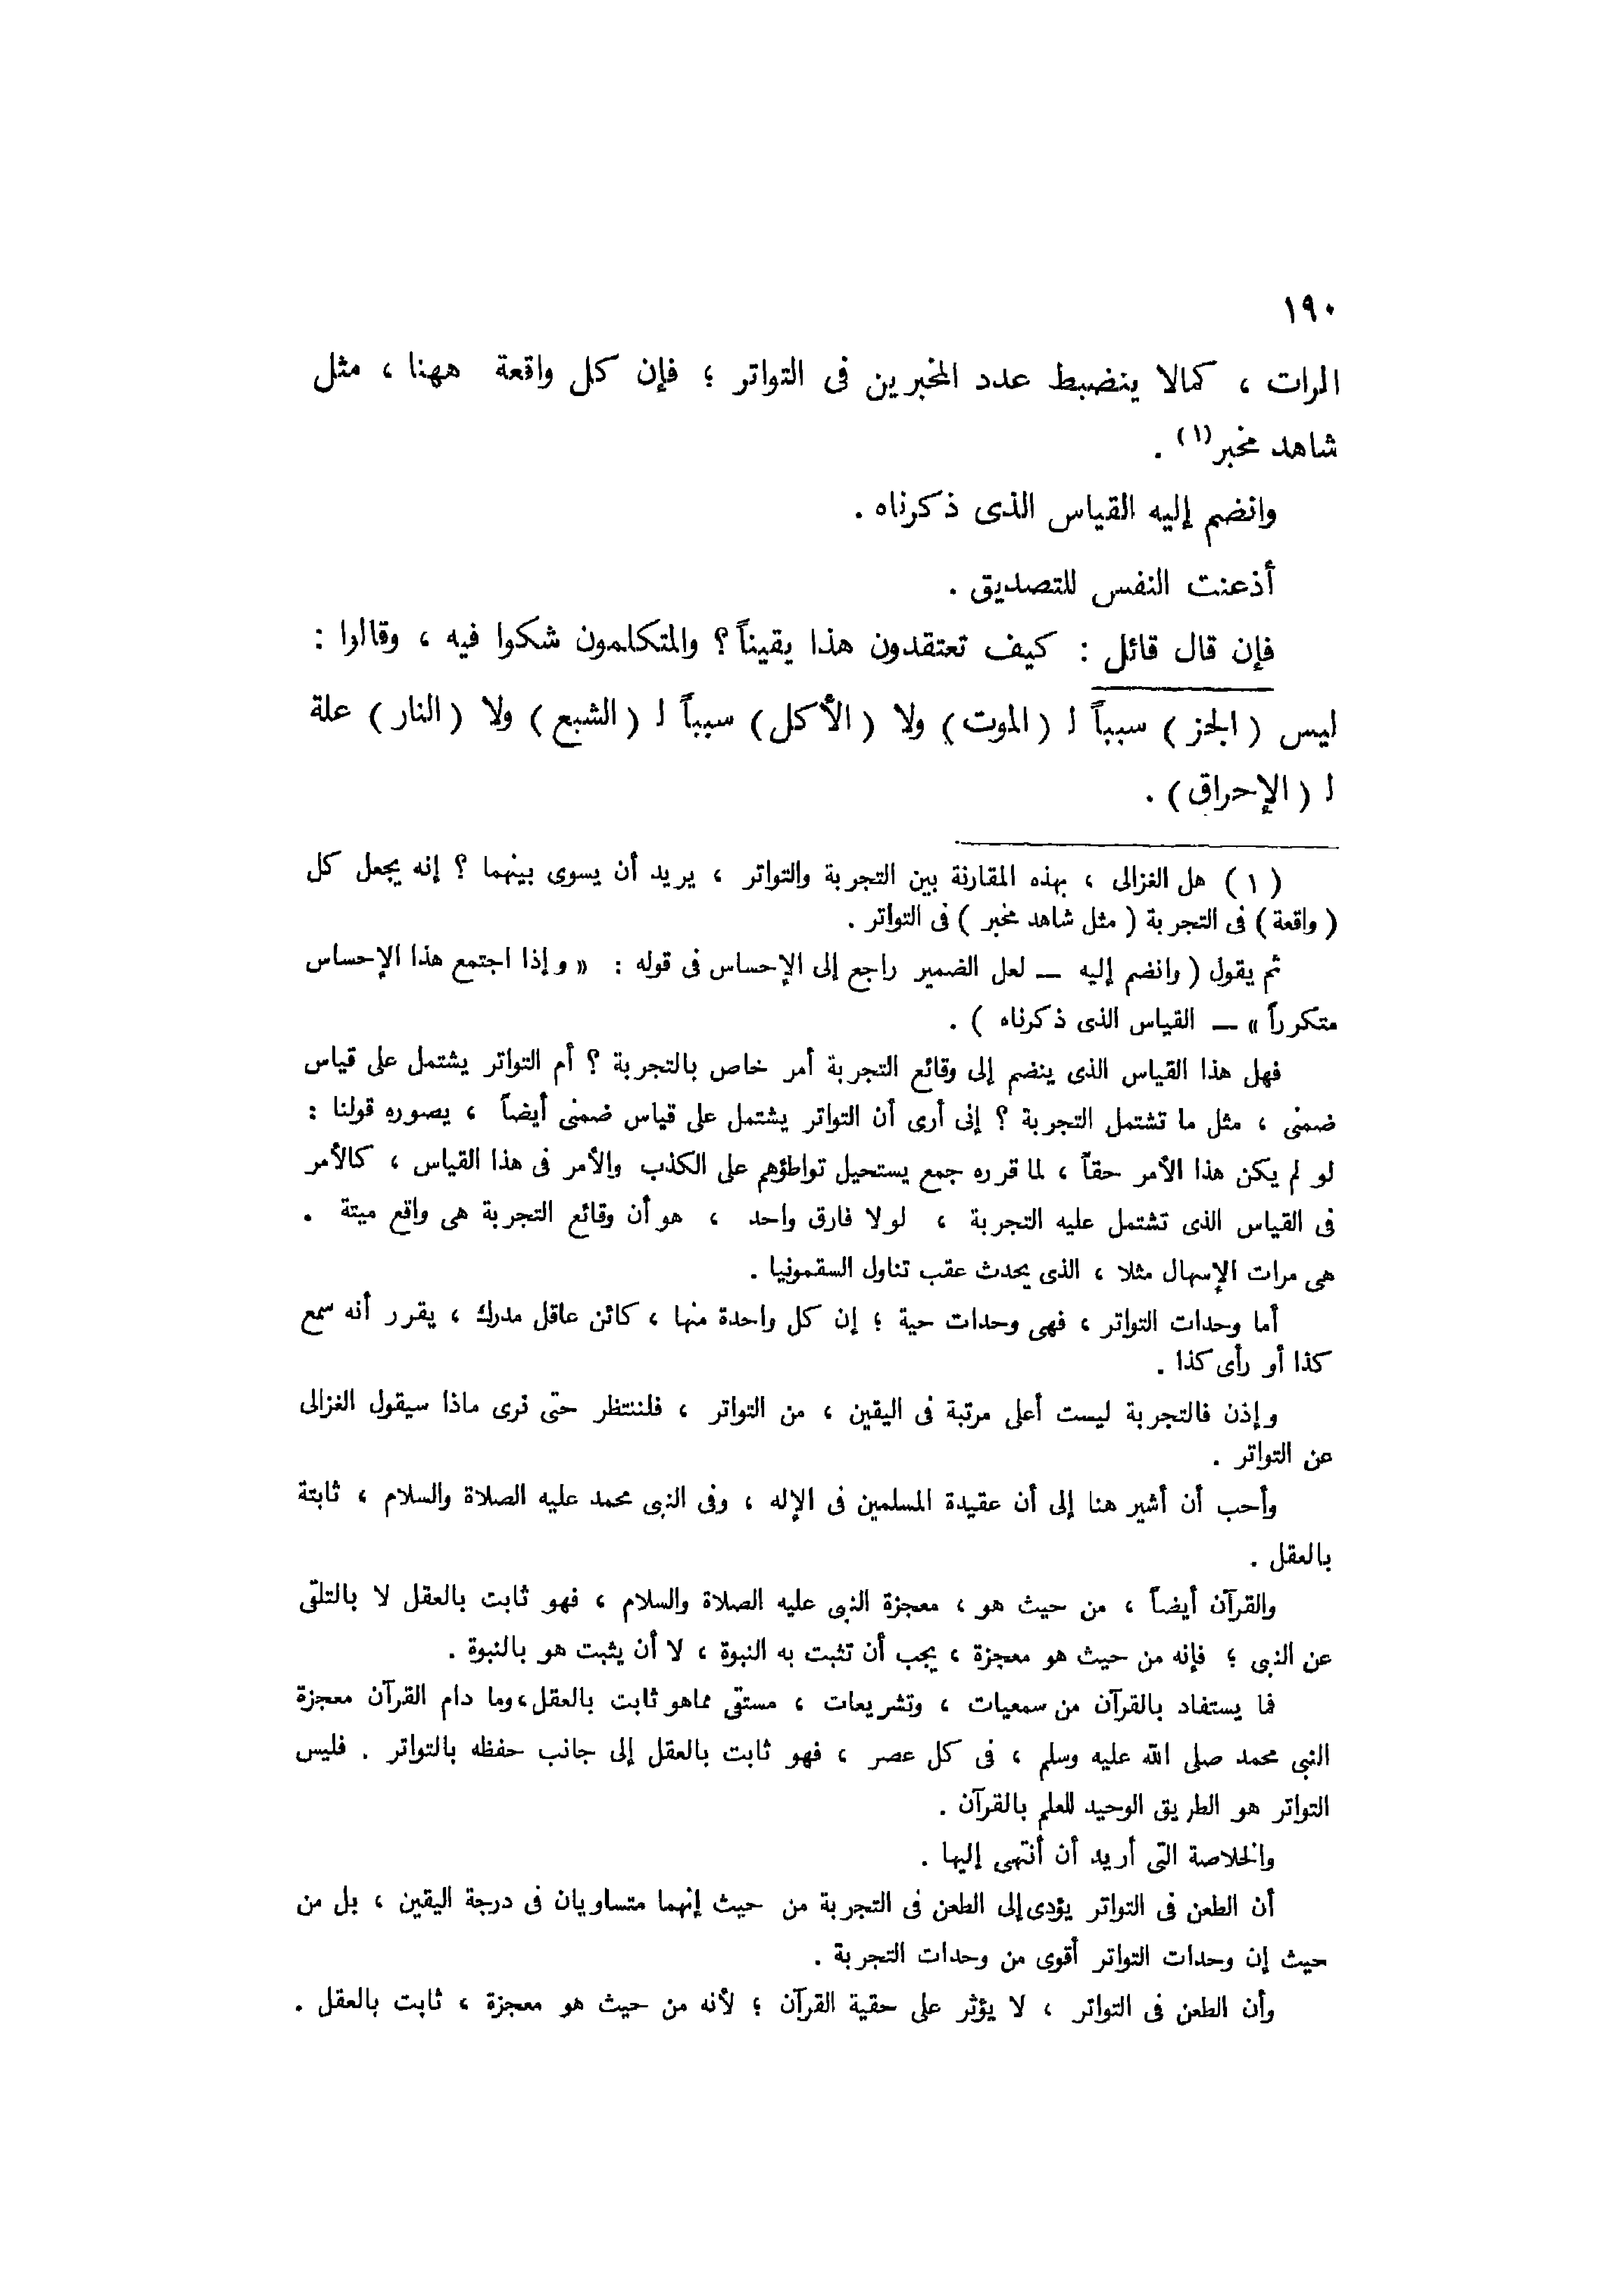 ١٩٠
المرات ، كمالا ينضبط عدد المخبرين فى التواتر ؛ فإن كل واقعة ههنا ، مثل
شاهد مخبر(١) .
وانضم إليه القياس الذى ذكرناه .
أذعنت النفس للتصديق .
فإن قال قائل : كيف تعتقدون هذا يقيناً ؟ والمتكلمون شكوا فيه ، وقالوا :
ليس ( الجز ) سبباً لـ ( الموت ) ولا ( الأكل ) سبباً لـ ( الشبع ) ولا ( النار ) علة
لـ ( الإحراق ) .
( ١ ) هل الغزالى ، بهذه المقارنة بين التجربة والتواتر ، يريد أن يسوى بينهما ؟ إنه يجعل كل
( واقعة ) فى التجربة ( مثل شاهد مخبر ) فى التواتر .
ثم يقول ( وانضم إليه — لعل الضمير راجع إلى الإحساس فى قوله : « وإذا اجتمع هذا الإحساس
متكرراً » — القياس الذى ذكرناه ) .
فهل هذا القياس الذى ينضم إلى وقائع التجربة أمر خاص بالتجربة ؟ أم التواتر يشتمل على قياس
ضمنى ، مثل ما تشتمل التجربة ؟ إنى أرى أن التواتر يشتمل على قياس ضمنى أيضاً ، يصوره قولنا :
لو لم يكن هذا الأمر حقاً ، لما قرره جمع يستحيل تواطؤهم على الكذب والأمر فى هذا القياس ، كالأمر
فى القياس الذى تشتمل عليه التجربة ، لولا فارق واحد ، هو أن وقائع التجربة هى واقع ميتة .
هى مرات الإسهال مثلا ، الذى يحدث عقب تناول السقمونيا .
أما وحدات التواتر ، فهى وحدات حية ؛ إن كل واحدة منها ، كائن عاقل مدرك ، يقرر أنه سمع
كذا أو رأى كذا .
وإذن فالتجربة ليست أعلى مرتبة فى اليقين ، من التواتر ، فلننتظر حتى نرى ماذا سيقول الغزالى
عن التواتر .
وأحب أن أشير هنا إلى أن عقيدة المسلمين فى الإله ، وفى النبى محمد عليه الصلاة والسلام ، ثابتة
بالعقل .
والقرآن أيضاً ، من حيث هو ، معجزة النبى عليه الصلاة والسلام ، فهو ثابت بالعقل لا بالتلقى
عن النبى ؛ فإنه من حيث هو معجزة ، يجب أن تثبت به النبوة ، لا أن يثبت هو بالنبوة .
فما يستفاد بالقرآن من سمعيات ، وتشريعات ، مستقى مماهو ثابت بالعقل ، وما دام القرآن معجزة
النبى محمد صلى الله عليه وسلم ، فى كل عصر ، فهو ثابت بالعقل إلى جانب حفظه بالتواتر . فليس
التواتر هو الطريق الوحيد للعلم بالقرآن .
والخلاصة التى أريد أن أنتهى إليها .
أن الطعن فى التواتر يؤدى إلى الطعن فى التجربة من حيث إنهما متساويان فى درجة اليقين ، بل من
حيث إن وحدات التواتر أقوى من وحدات التجربة .
وأن الطعن فى التواتر ، لا يؤثر على حقية القرآن ؛ لأنه من حيث هو معجزة ، ثابت بالعقل .